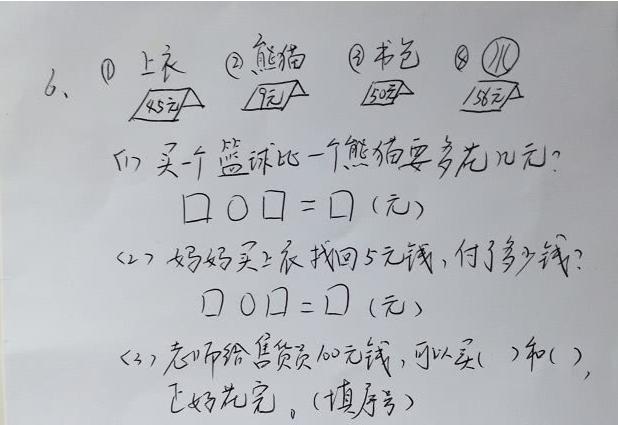 6、 ① 上衣 ② 熊猫 ③ 书包 ④
45元 9元 50元 56元
(1) 买一个篮球比一个熊猫要多花几元?
□○□=□(元)
(2) 妈妈买上衣找回5元钱,付了多少钱?
□○□=□(元)
(3) 老师给售货员100元钱,可以买( )和( ),
正好花完。(填序号)